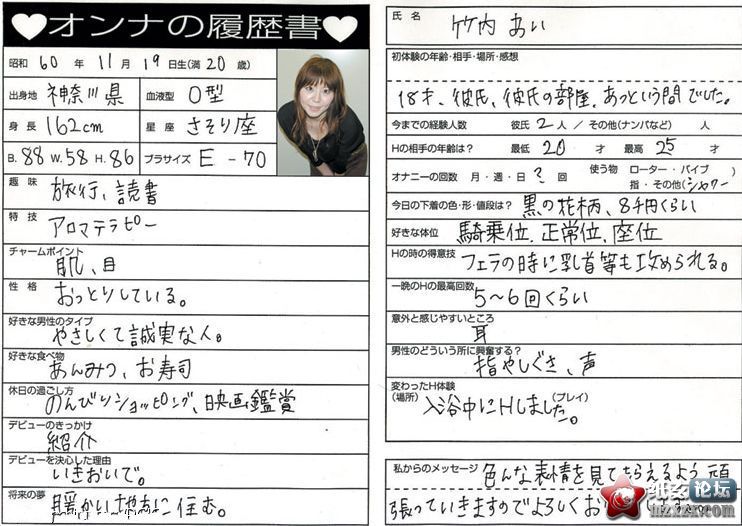 オンナの履歴書
昭和 60 年 11 月 19 日生(満 20 歳)
出身地 神奈川県 血液型 O型
身長 162cm 星座 さそり座
B. 88 W. 58 H. 86 ブラサイズ E-70
趣味 旅行、読書
特技 アロマテラピー
チャームポイント
肌、目
性格 おっとりしている。
好きな男性のタイプ
やさしくて誠実な人。
好きな食べ物
あんみつ、お寿司
休日の過ごし方
のんびりショッピング、映画鑑賞
デビューのきっかけ
紹介
デビューを決心した理由
いきおいで。
将来の夢 暖かい 住む。
氏名 竹内 あい
初体験の年齢・相手・場所・感想
18才、彼氏、彼氏の部屋、あっという間でした。
今までの経験人数 彼氏 2人 / その他(ナンパなど) 人
Hの相手の年齢は? 最低 20 才 最高 25 才
オナニーの回数 月・週・日 ? 回 使う物 ローター・バイブ
指・その他(シャワー)
今日の下着の色・形・値段は? 黒の花柄、8千円くらい
好きな体位 騎乗位、正常位、座位
Hの時の得意技 フェラの時に乳首等も攻められる。
一晩のHの最高回数
5〜6回くらい
意外と感じやすいところ
耳
男性のどういう所に興奮する?
指やしぐさ、声
変わったH体験
(場所) 入浴中にHしました。 (プレイ)
私からのメッセージ 色んな表情を見てもらえるよう頑
張っていきますのでよろしくお
论坛